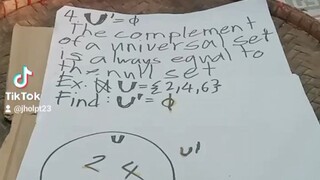 4. U' = ϕ
The complement
of a universal set
is always equal to
the null set
Ex. U = {2,4,6}
Find: U' = ϕ
U
U'
2 4
TikTok
@jholpt23